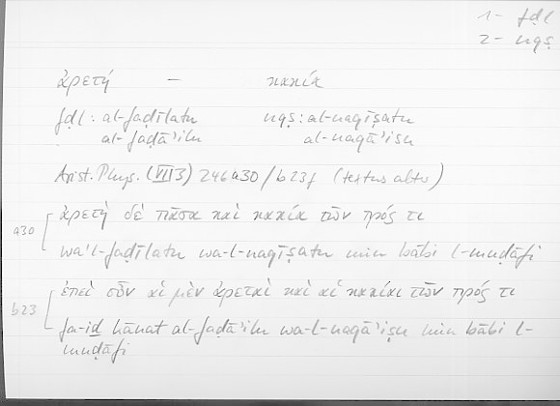 1- fḍl
2- nqṣ
ἀρετή — κακία
fḍl: al-faḍīlatu nqṣ: al-naqīṣatu
al-faḍāʾilu al-naqāʾiṣu
Arist. Phys. (VII 3) 246a30/b23f (textus alter)
a30 ἀρετὴ δὲ πᾶσα καὶ κακία τῶν πρός τι
wa'l-faḍīlatu wa-l-naqīṣatu min bābi l-muḍāfi
b23 ἐπεὶ οὖν αἱ μὲν ἀρεταὶ καὶ αἱ κακίαι τῶν πρός τι
fa-iḏ kānat al-faḍāʾilu wa-l-naqāʾiṣu min bābi l-
muḍāfi